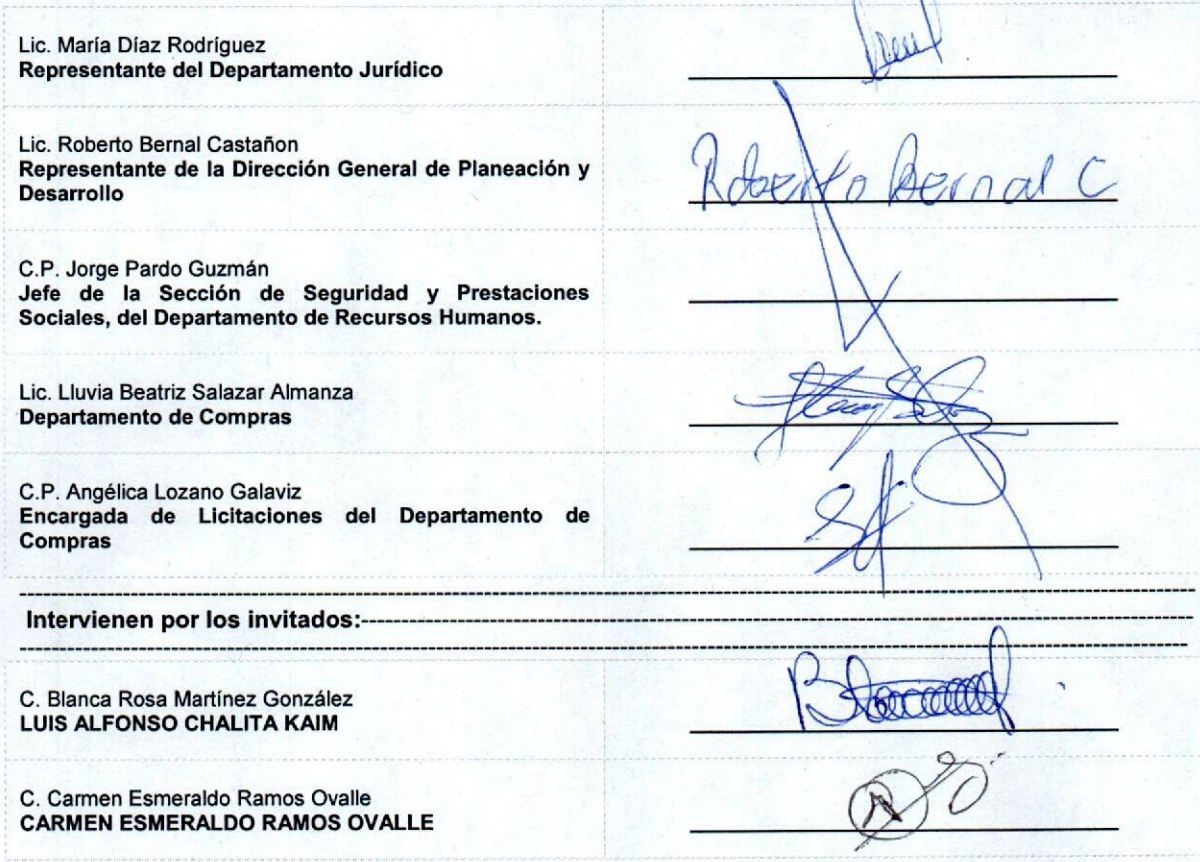 Lic. María Díaz Rodríguez
Representante del Departamento Jurídico
Lic. Roberto Bernal Castañon
Representante de la Dirección General de Planeación y
Desarrollo
Roberto Bernal C
C.P. Jorge Pardo Guzmán
Jefe de la Sección de Seguridad y Prestaciones
Sociales, del Departamento de Recursos Humanos.
Lic. Lluvia Beatriz Salazar Almanza
Departamento de Compras
C.P. Angélica Lozano Galaviz
Encargada de Licitaciones del Departamento de
Compras
Intervienen por los invitados:
C. Blanca Rosa Martínez González
LUIS ALFONSO CHALITA KAIM
C. Carmen Esmeraldo Ramos Ovalle
CARMEN ESMERALDO RAMOS OVALLE